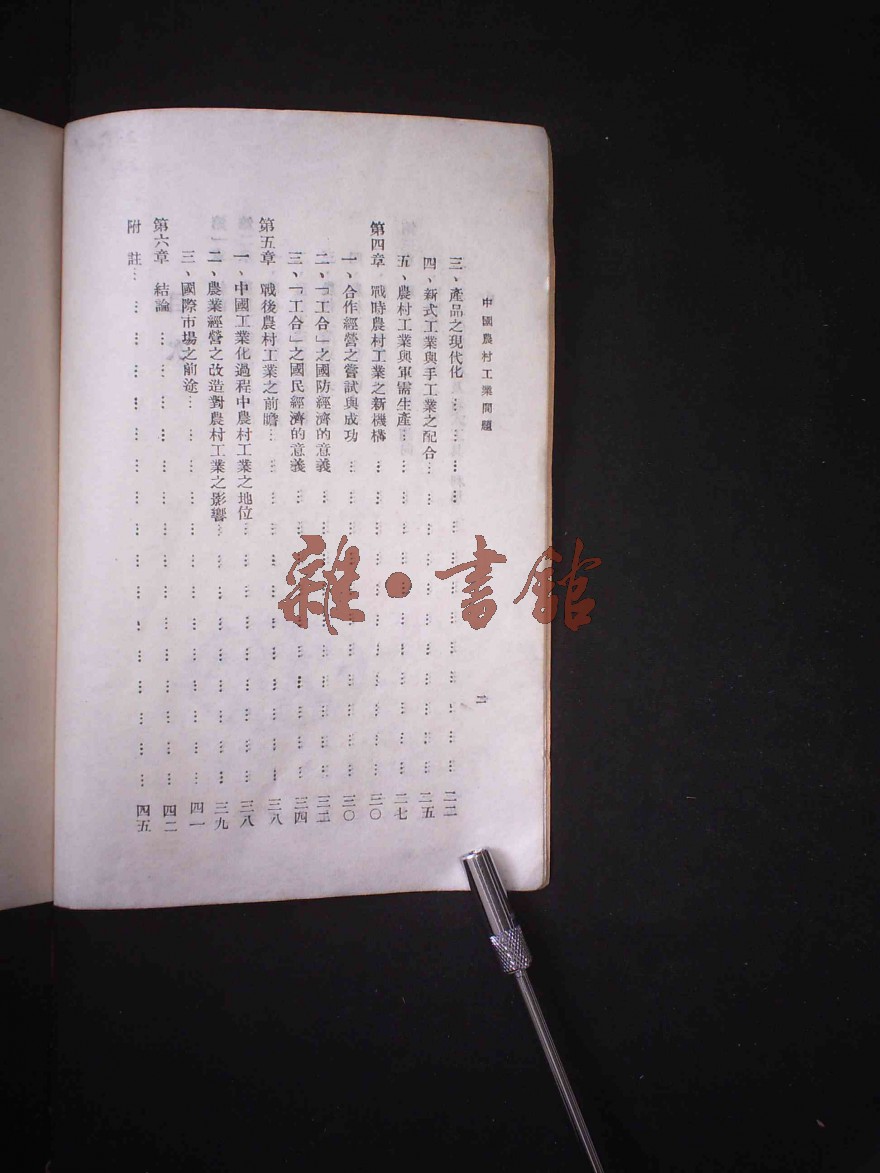 中國農村工業問題
二
三、產品之現代化 … … … … … … … … 二二
四、新式工業與手工業之配合 … … … … … … … 二五
五、農村工業與軍需生產 … … … … … … … 二七
第四章 戰時農村工業之新機構 … … … … … … … 三〇
一、合作經營之嘗試與成功 … … … … … … … 三〇
二、「工合」之國防經濟的意義 … … … … … … … 三二
三、「工合」之國民經濟的意義 … … … … … … … 三四
第五章 戰後農村工業之前瞻 … … … … … … … 三八
一、中國工業化過程中農村工業之地位 … … … … … … 三八
二、農業經營之改造對農村工業之影響 … … … … … … 三九
三、國際市場之前途 … … … … … … … … 四一
第六章 結論 … … … … … … … … … 四二
附 註 … … … … … … … … … … 四五
雜·書館